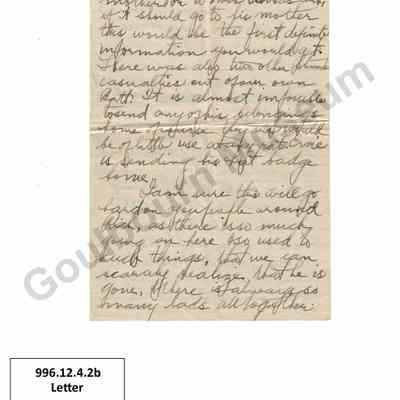 if it should go to his mother
this would be the first definite
information you would get.
There was also two other
casualties out of our own
Batt. It is almost impossible
to send any of his belongings
home
be of little use
is sending his hat badge
home.
I am sure this will go
hard on you people around
there, as there is so much
going on here & so used to
such things, that we can
scarcely realize that he is
gone, there is always so
many lads all together.
Gouldbourn Museum
996.12.4.2b
Letter